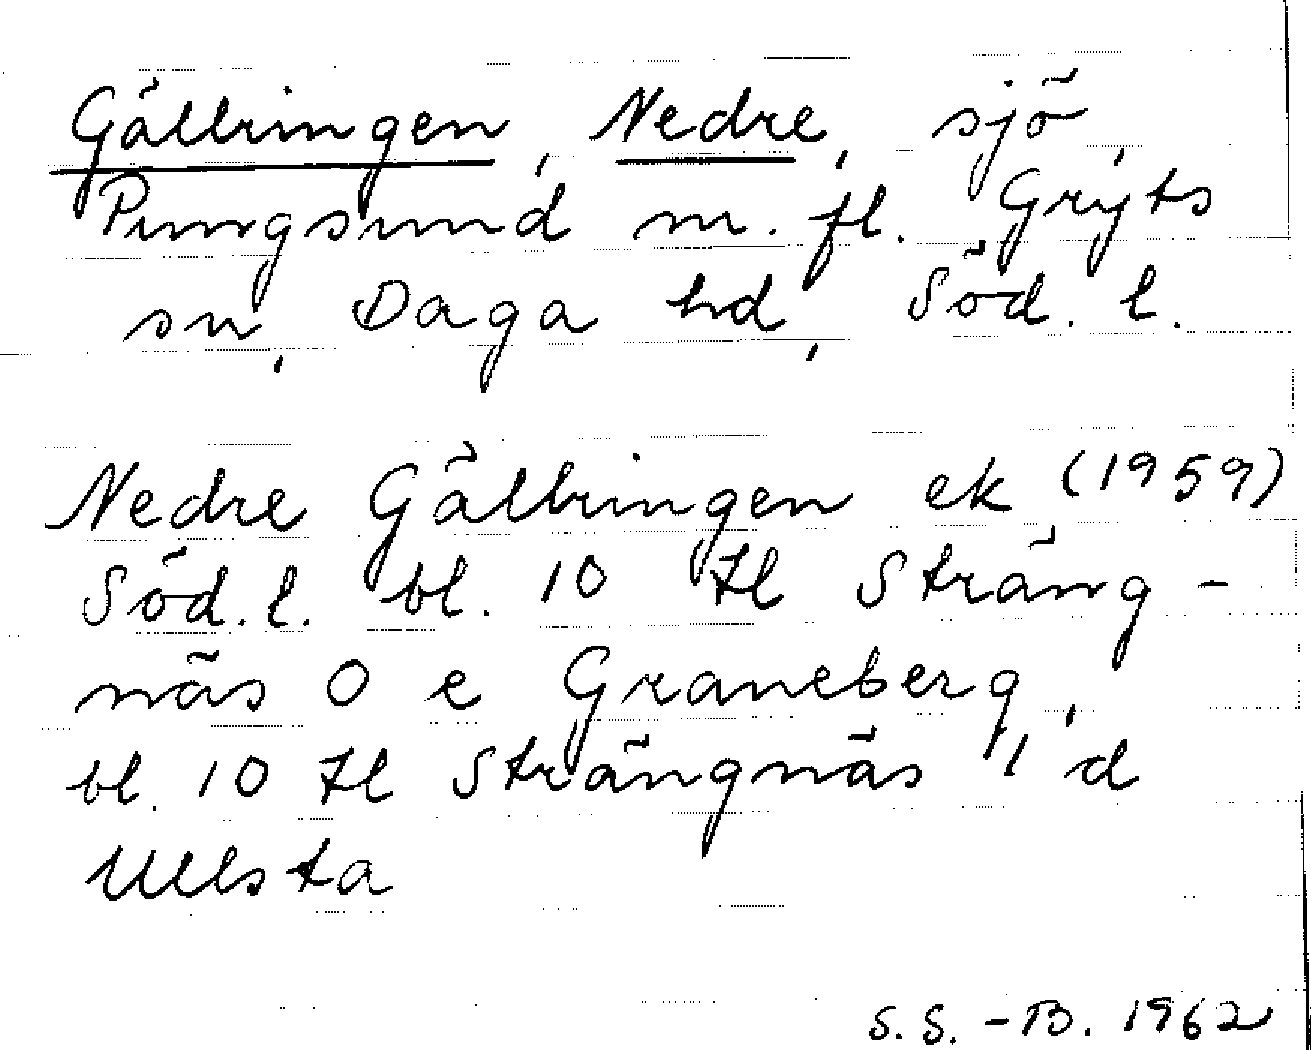 Gällringen, Nedre, sjö,
Pungsund m. fl. Gryts
sn, Daga hd, Söd. l.
Nedre Gällringen ek (1959)
Söd. l. bl. 10 tl Sträng-
näs O e Graneberg,
bl. 10 tl Strängnäs 1 d
Ullsta
S. S. -B. 1962